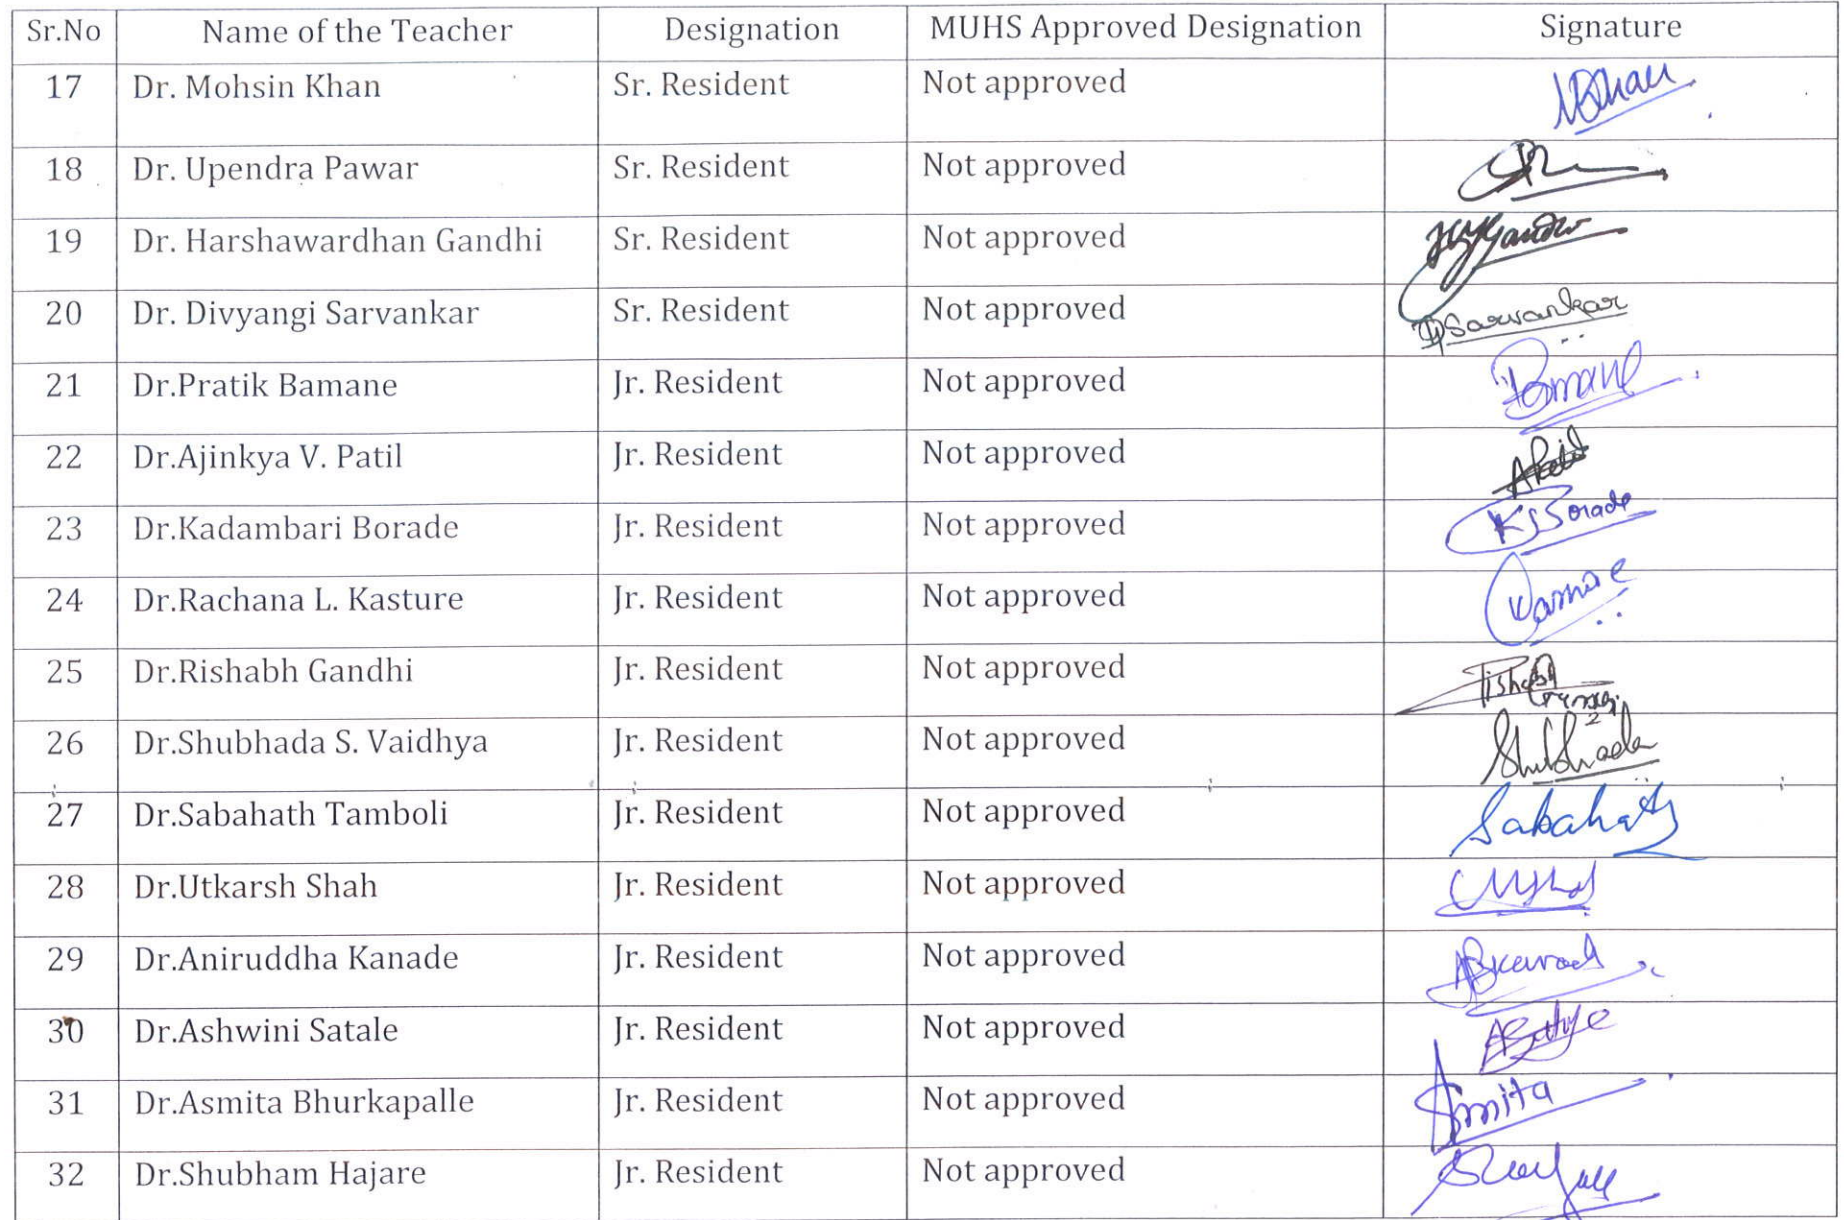 Sr.No Name of the Teacher Designation MUHS Approved Designation Signature
17 Dr. Mohsin Khan Sr. Resident Not approved
18 Dr. Upendra Pawar Sr. Resident Not approved
19 Dr. Harshawardhan Gandhi Sr. Resident Not approved
20 Dr. Divyangi Sarvankar Sr. Resident Not approved Sarvankar
21 Dr.Pratik Bamane Jr. Resident Not approved
22 Dr.Ajinkya V. Patil Jr. Resident Not approved
23 Dr.Kadambari Borade Jr. Resident Not approved
24 Dr.Rachana L. Kasture Jr. Resident Not approved
25 Dr.Rishabh Gandhi Jr. Resident Not approved
26 Dr.Shubhada S. Vaidhya Jr. Resident Not approved Shubhada
27 Dr.Sabahath Tamboli Jr. Resident Not approved Sabahath
28 Dr.Utkarsh Shah Jr. Resident Not approved
29 Dr.Aniruddha Kanade Jr. Resident Not approved
30 Dr.Ashwini Satale Jr. Resident Not approved
31 Dr.Asmita Bhurkapalle Jr. Resident Not approved Asmita
32 Dr.Shubham Hajare Jr. Resident Not approved